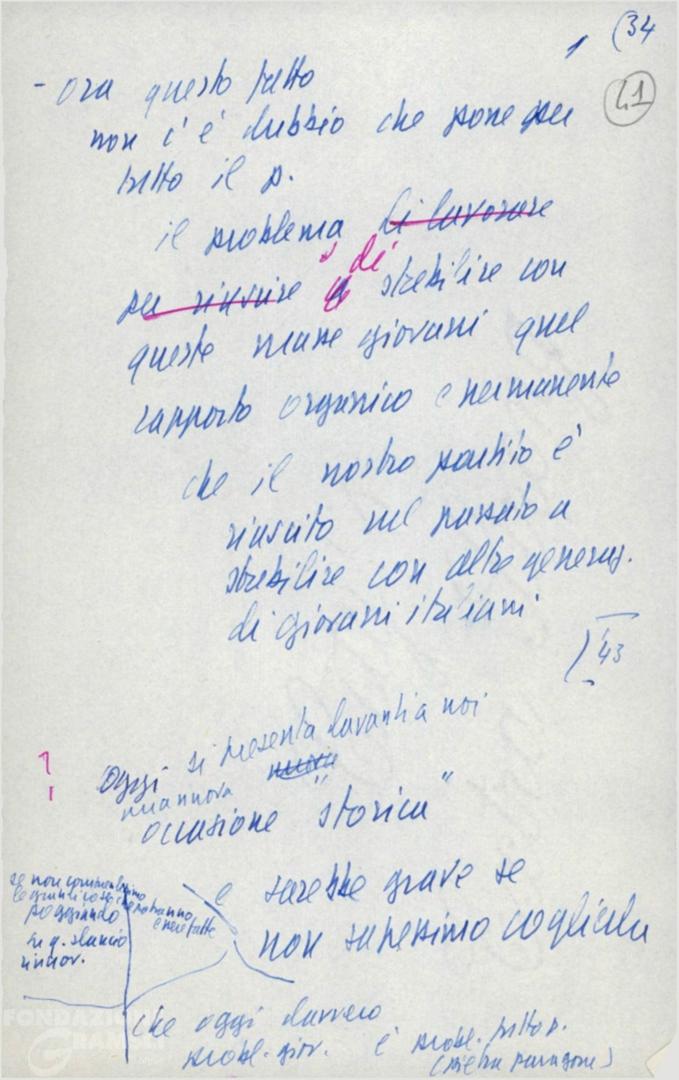 (34
41
- ora questo fatto
non c'è dubbio che pone per
tutto il p.
il problema di lavorare
per riuscire a di stabilire con
queste masse giovani quel
rapporto organico e permanente
che il nostro partito è
riuscito nel passato a
stabilire con altre generaz.
di giovani italiani
43
Oggi si presenta davanti a noi
una nuova nuova
occasione "storica"
e sarebbe grave se
non sapessimo coglierla
se non
le grandi cose che potranno
essere fatte
poggiando
su q. slancio
rinnov.
che oggi davvero
probl. giov. è probl. tutto p.
(pietra paragone)
FONDAZIONE
GRAMSCI